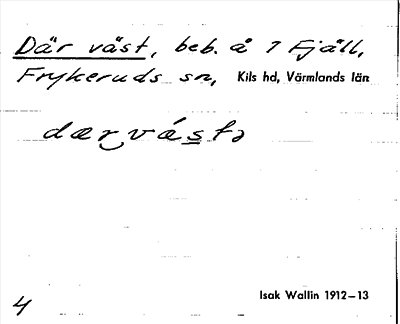 Där väst, beb. å 7 Fjäll,
Frykeruds sn, Kils hd, Värmlands län
dærvásta
Isak Wallin 1912–13
4